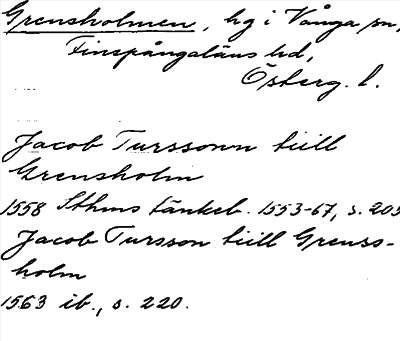 Grensholmen, hg i Vånga sn,
Finspångaläns hd,
Österg. l.
Jacob Turssonn tiill
Grensholm
1558 Sthms tänkeb. 1553-67, s. 205
Jacob Tursson tiill Grenss-
holm
1563 ib., s. 220.